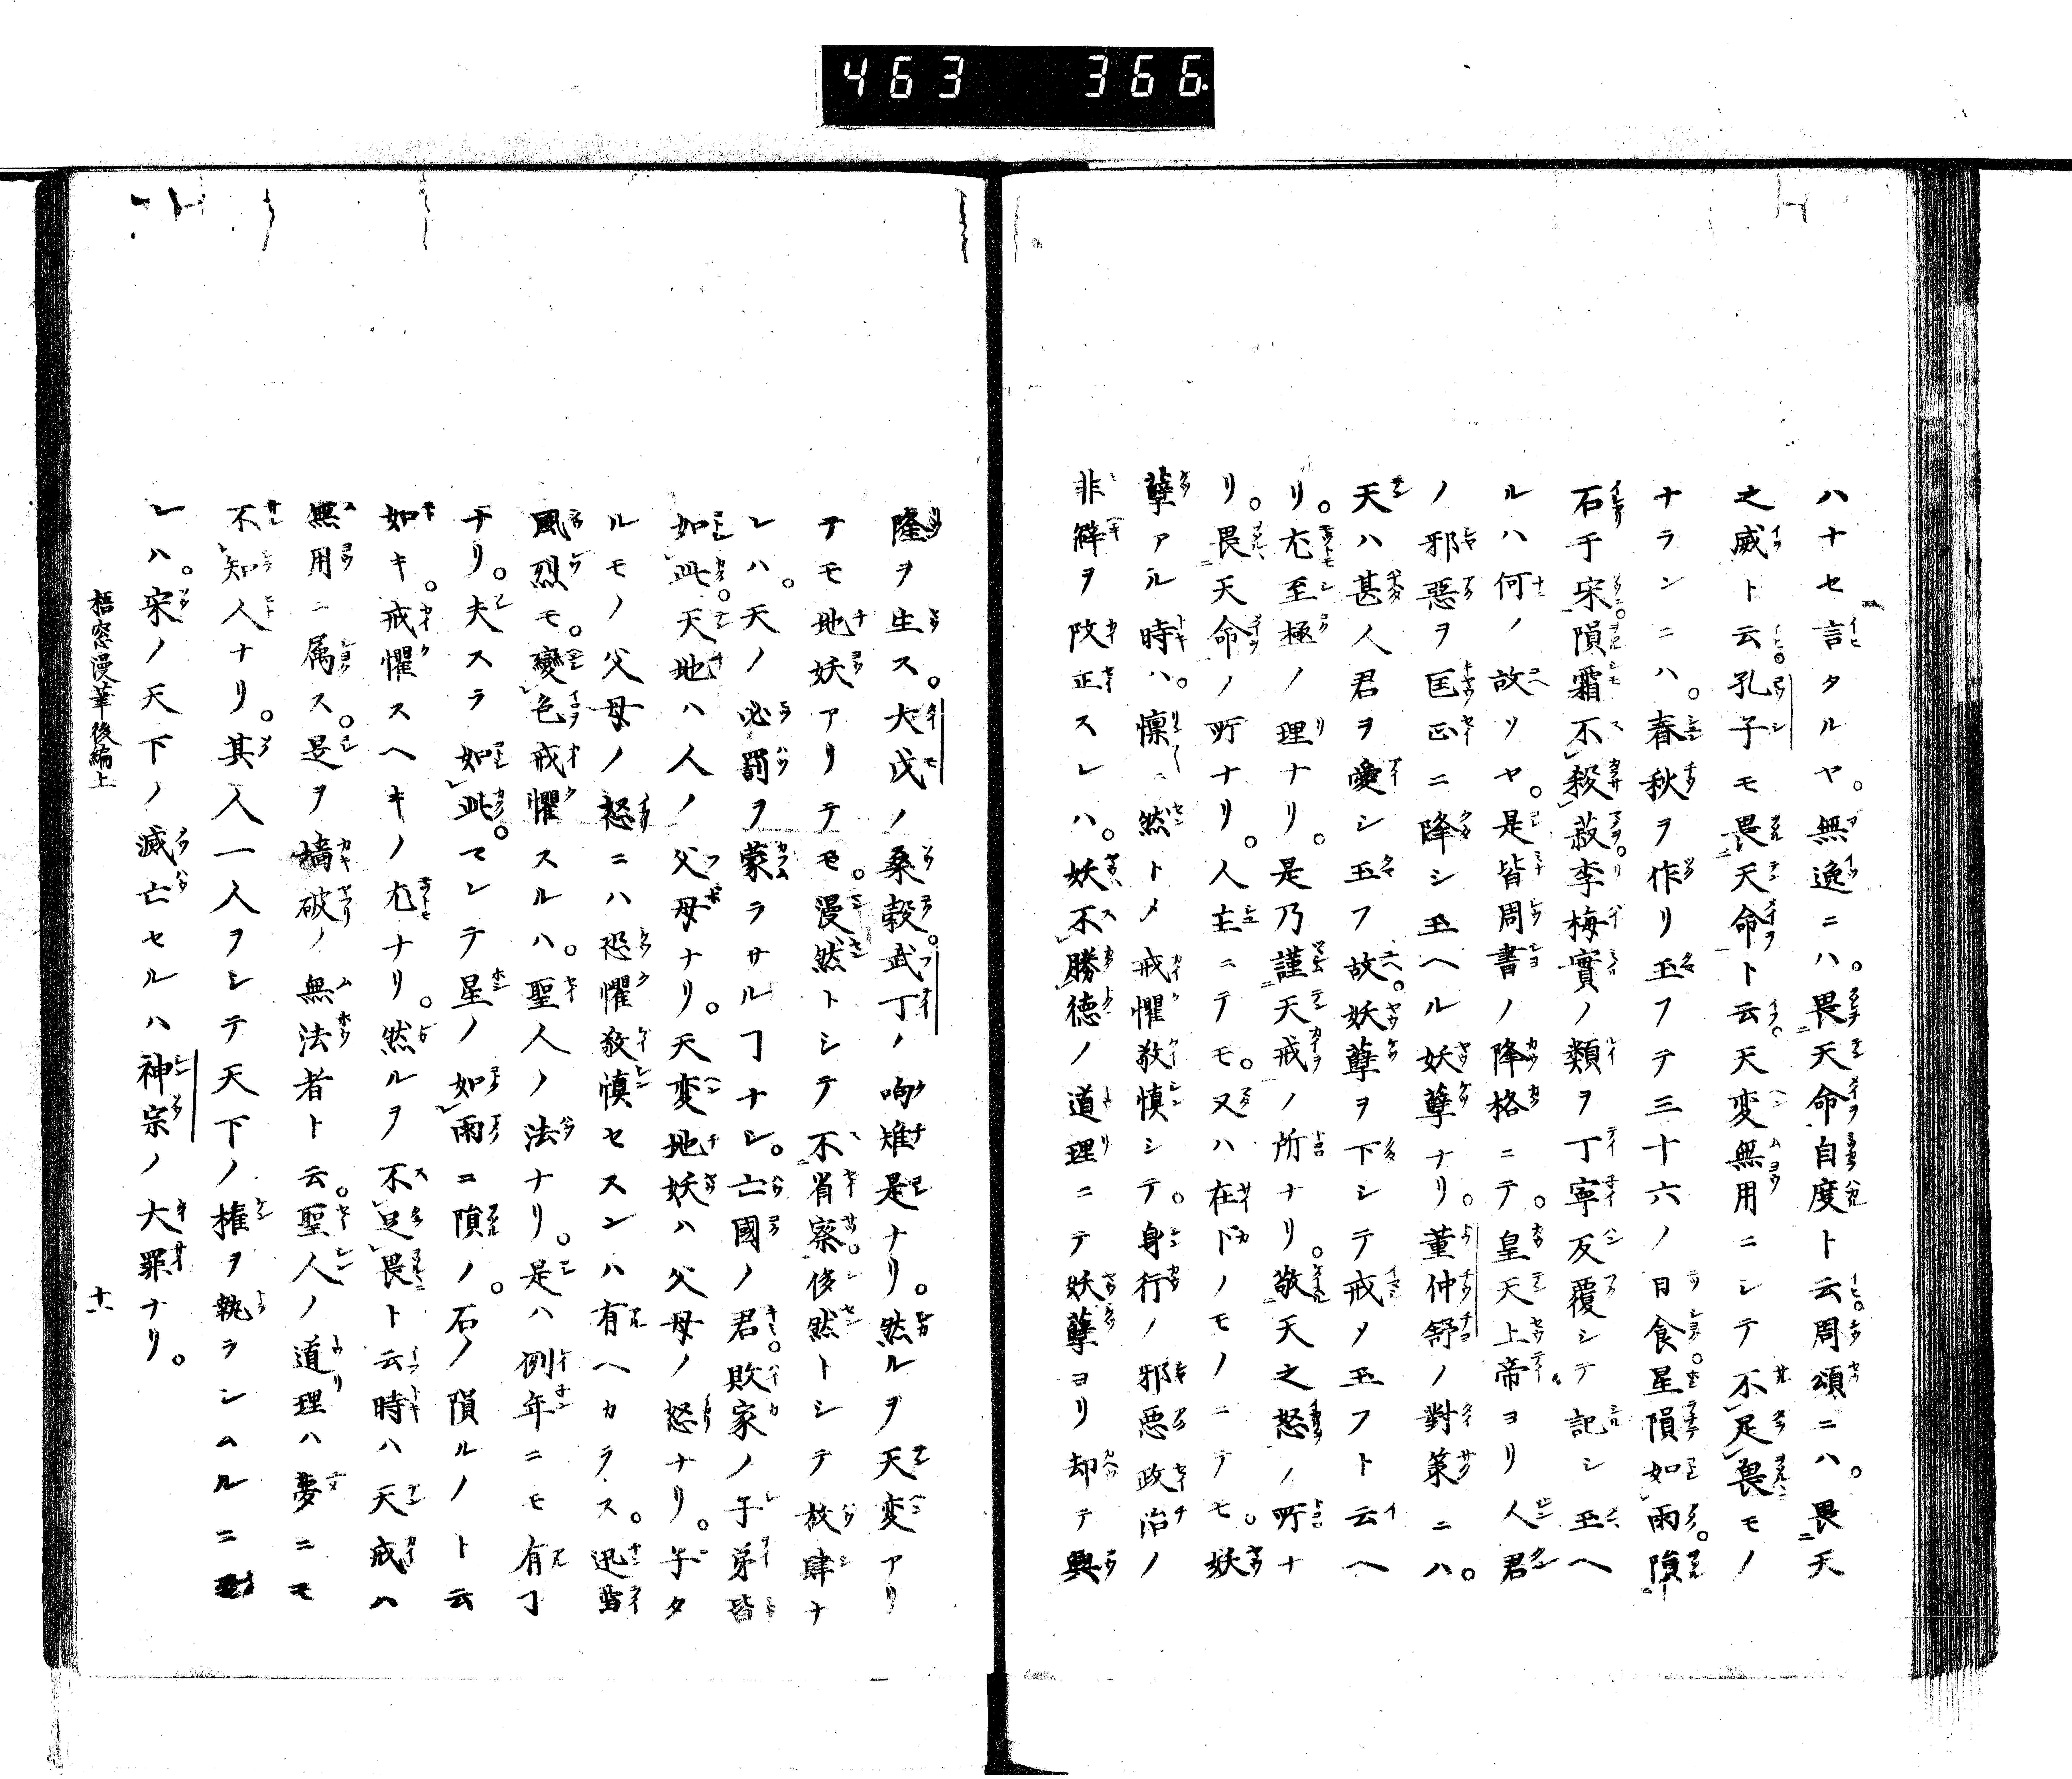 463 366
ハナセ言タルヤ。無逸ニハ。畏天命自度ト云周頌ニハ。畏天
之威ト云孔子モ畏天命ト云天変無用ニシテ不足畏モノ
ナランニハ。春秋ヲ作リ玉フテ三十六ノ日食星隕如雨。隕
石于宋。隕霜不殺菽李梅實ノ類ヲ丁寧反覆シテ記シ玉ヘ
ルハ何ノ故ソヤ。是皆周書ノ降格ニテ。皇天上帝ヨリ人君
ノ邪惡ヲ匡正ニ降シ玉ヘル妖孽ナリ。董仲舒ノ對策ニハ。
天ハ甚人君ヲ愛シ玉フ故。妖孽ヲ下シテ戒メ玉フト云ヘ
リ。尤至極ノ理ナリ。是乃謹天戒ノ所ナリ。敬天之怒ノ所ナ
リ。畏天命ノ所ナリ。人主ニテモ。又ハ在下ノモノニテモ。妖
孽アル時ハ。懍々然トメ戒懼敬慎シテ。身行ノ邪惡政治ノ
非辟ヲ改正スレハ。妖不勝德ノ道理ニテ妖孽ヨリ却テ興
隆ヲ生ス。大戊ノ桑穀。武丁ノ呴雉是ナリ。然ルヲ天変アリ
テモ地妖アリテモ。漫然トシテ不省察。侈然トシテ放肆ナ
レハ。天ノ必罰ヲ蒙ラサルヿナシ。亡國ノ君。敗家ノ子弟皆
如此。天地ハ人ノ父母ナリ。天変地妖ハ父母ノ怒ナリ。子タ
ルモノ父母ノ怒ニハ恐懼敬慎セスンハ有ヘカラス。迅雷
風烈モ。變色戒懼スルハ。聖人ノ法ナリ。是ハ例年ニモ有ヿ
ナリ。夫スラ如此。マシテ星ノ如雨ニ隕ノ。石ノ隕ルノト云
如キ。戒懼スヘキノ尤ナリ。然ルヲ不足畏ト云時ハ天戒ハ
無用ニ属ス。是ヲ墻破ノ無法者ト云。聖人ノ道理ハ夢ニモ
不知人ナリ。其人一人ヲシテ天下ノ権ヲ執ラシムルニ至
レハ。宋ノ天下ノ滅亡セルハ神宗ノ大罪ナリ。
梧窓漫筆後編上
十六